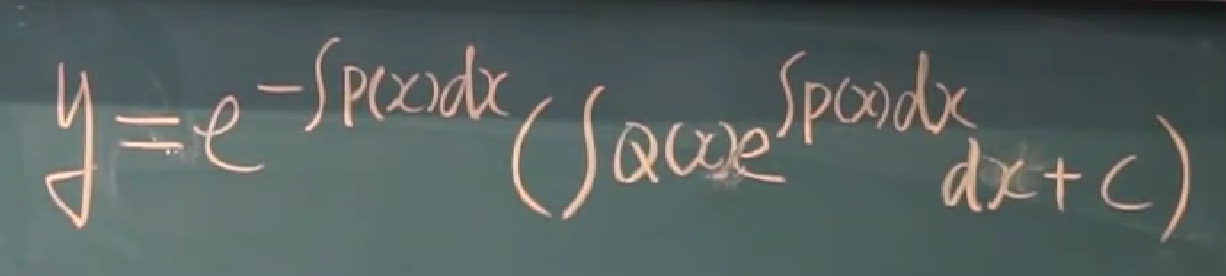 y=e^{-∫P(x)dx}(∫Q(x)e^{∫p(x)dx}dx+c)